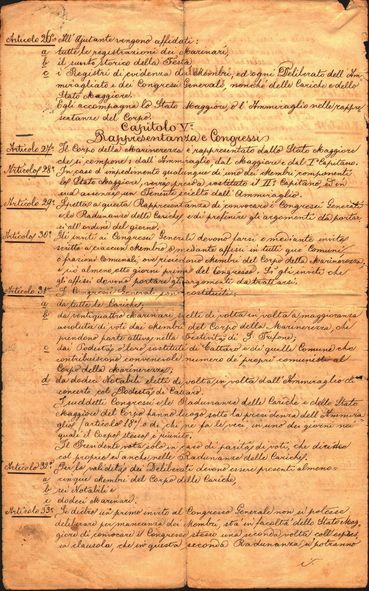 Articolo 26° All'Ajutante vengono affidati:
a tutte le registrazioni dei Marinari,
b il sunto storico della Festa
c i Registri di evidenza dei Membri, ed ogni Deliberato dell'Am-
miragliato e dei Congressi Generali, nonchè delle Cariche e dello
Stato Maggiore.
Egli accompagna lo Stato Maggiore, e l'Ammiraglio nelle rappre-
sentanze del Corpo.
Capitolo V°
Rappresentanza e Congressi
Articolo 27° Il Corpo della Marinerezza è rappresentato dallo Stato Maggiore
che si compone: dall'Ammiraglio, dal Maggiore e dal I° Capitano.
Articolo 28° In caso d'impedimento qualunque di uno dei membri componenti
lo Stato Maggiore, verrà sostituito il II° Capitano, ed in
sua assenza un Tenente scelto dall'Ammiraglio.
Articolo 29° Spetta a questa Rappresentanza di convocare i Congressi Generali
e le Radunanze delle Cariche e di prefinire gli argomenti da portar-
si all'ordine del giorno.
Articolo 30° Gli inviti ai Congressi Generali devono farsi e mediante invito
scritto a ciascun Membro, e mediante affissi in tutti quei Comuni
e frazioni Comunali, ove risiedono Membri del Corpo della Marinerezza,
e ciò almeno otto giorni prima del Congresso. Sì gli inviti che
gli affissi devono portare gli argomenti da trattarsi.
Articolo 31° I Congressi Generali sono costituiti:
a da tutte le Cariche,
b da ventiquattro Marinari, scelti di volta in volta a maggioranza
assoluta di voti dai Membri del Corpo della Marinerezza, che
prendono parte attiva nella Festività di S. Trifone,
c dai Podestà, o loro sostituti di Cattaro e di quelle Comune che
contribuiscono convenevole numero de' propri comunisti al
Corpo della Marinerezza
d da dodici Notabili eletti di volta in volta dall'Ammiraglio di
concerto col Podestà di Cattaro.
I suddetti Congressi e le Radunanze delle Cariche e dello Stato
Maggiore del Corpo hanno luogo sotto la presidenza dell'Ammira-
glio (articolo 18°) o di chi ne fa le veci in uno dei giorni nei
quali il Corpo stesso è riunito.
Il Presidente vota solo in caso di parità di voti, che dirime
col proprio ed anche nelle Radunanze delle Cariche.
Articolo 32° Per la validità dei Deliberati devono essere presenti almeno:
a cinque Membri del Corpo delle Cariche,
b sei Notabili e
c dodici Marinari.
Articolo 33° Se dietro un primo invito al Congresso Generale non si potesse
deliberare per mancanza dei Membri, sta in facoltà dello Stato Mag-
giore di convocare il Congresso stesso una seconda volta coll'espres-
sa clausola, che in questa seconda Radunanza si potranno